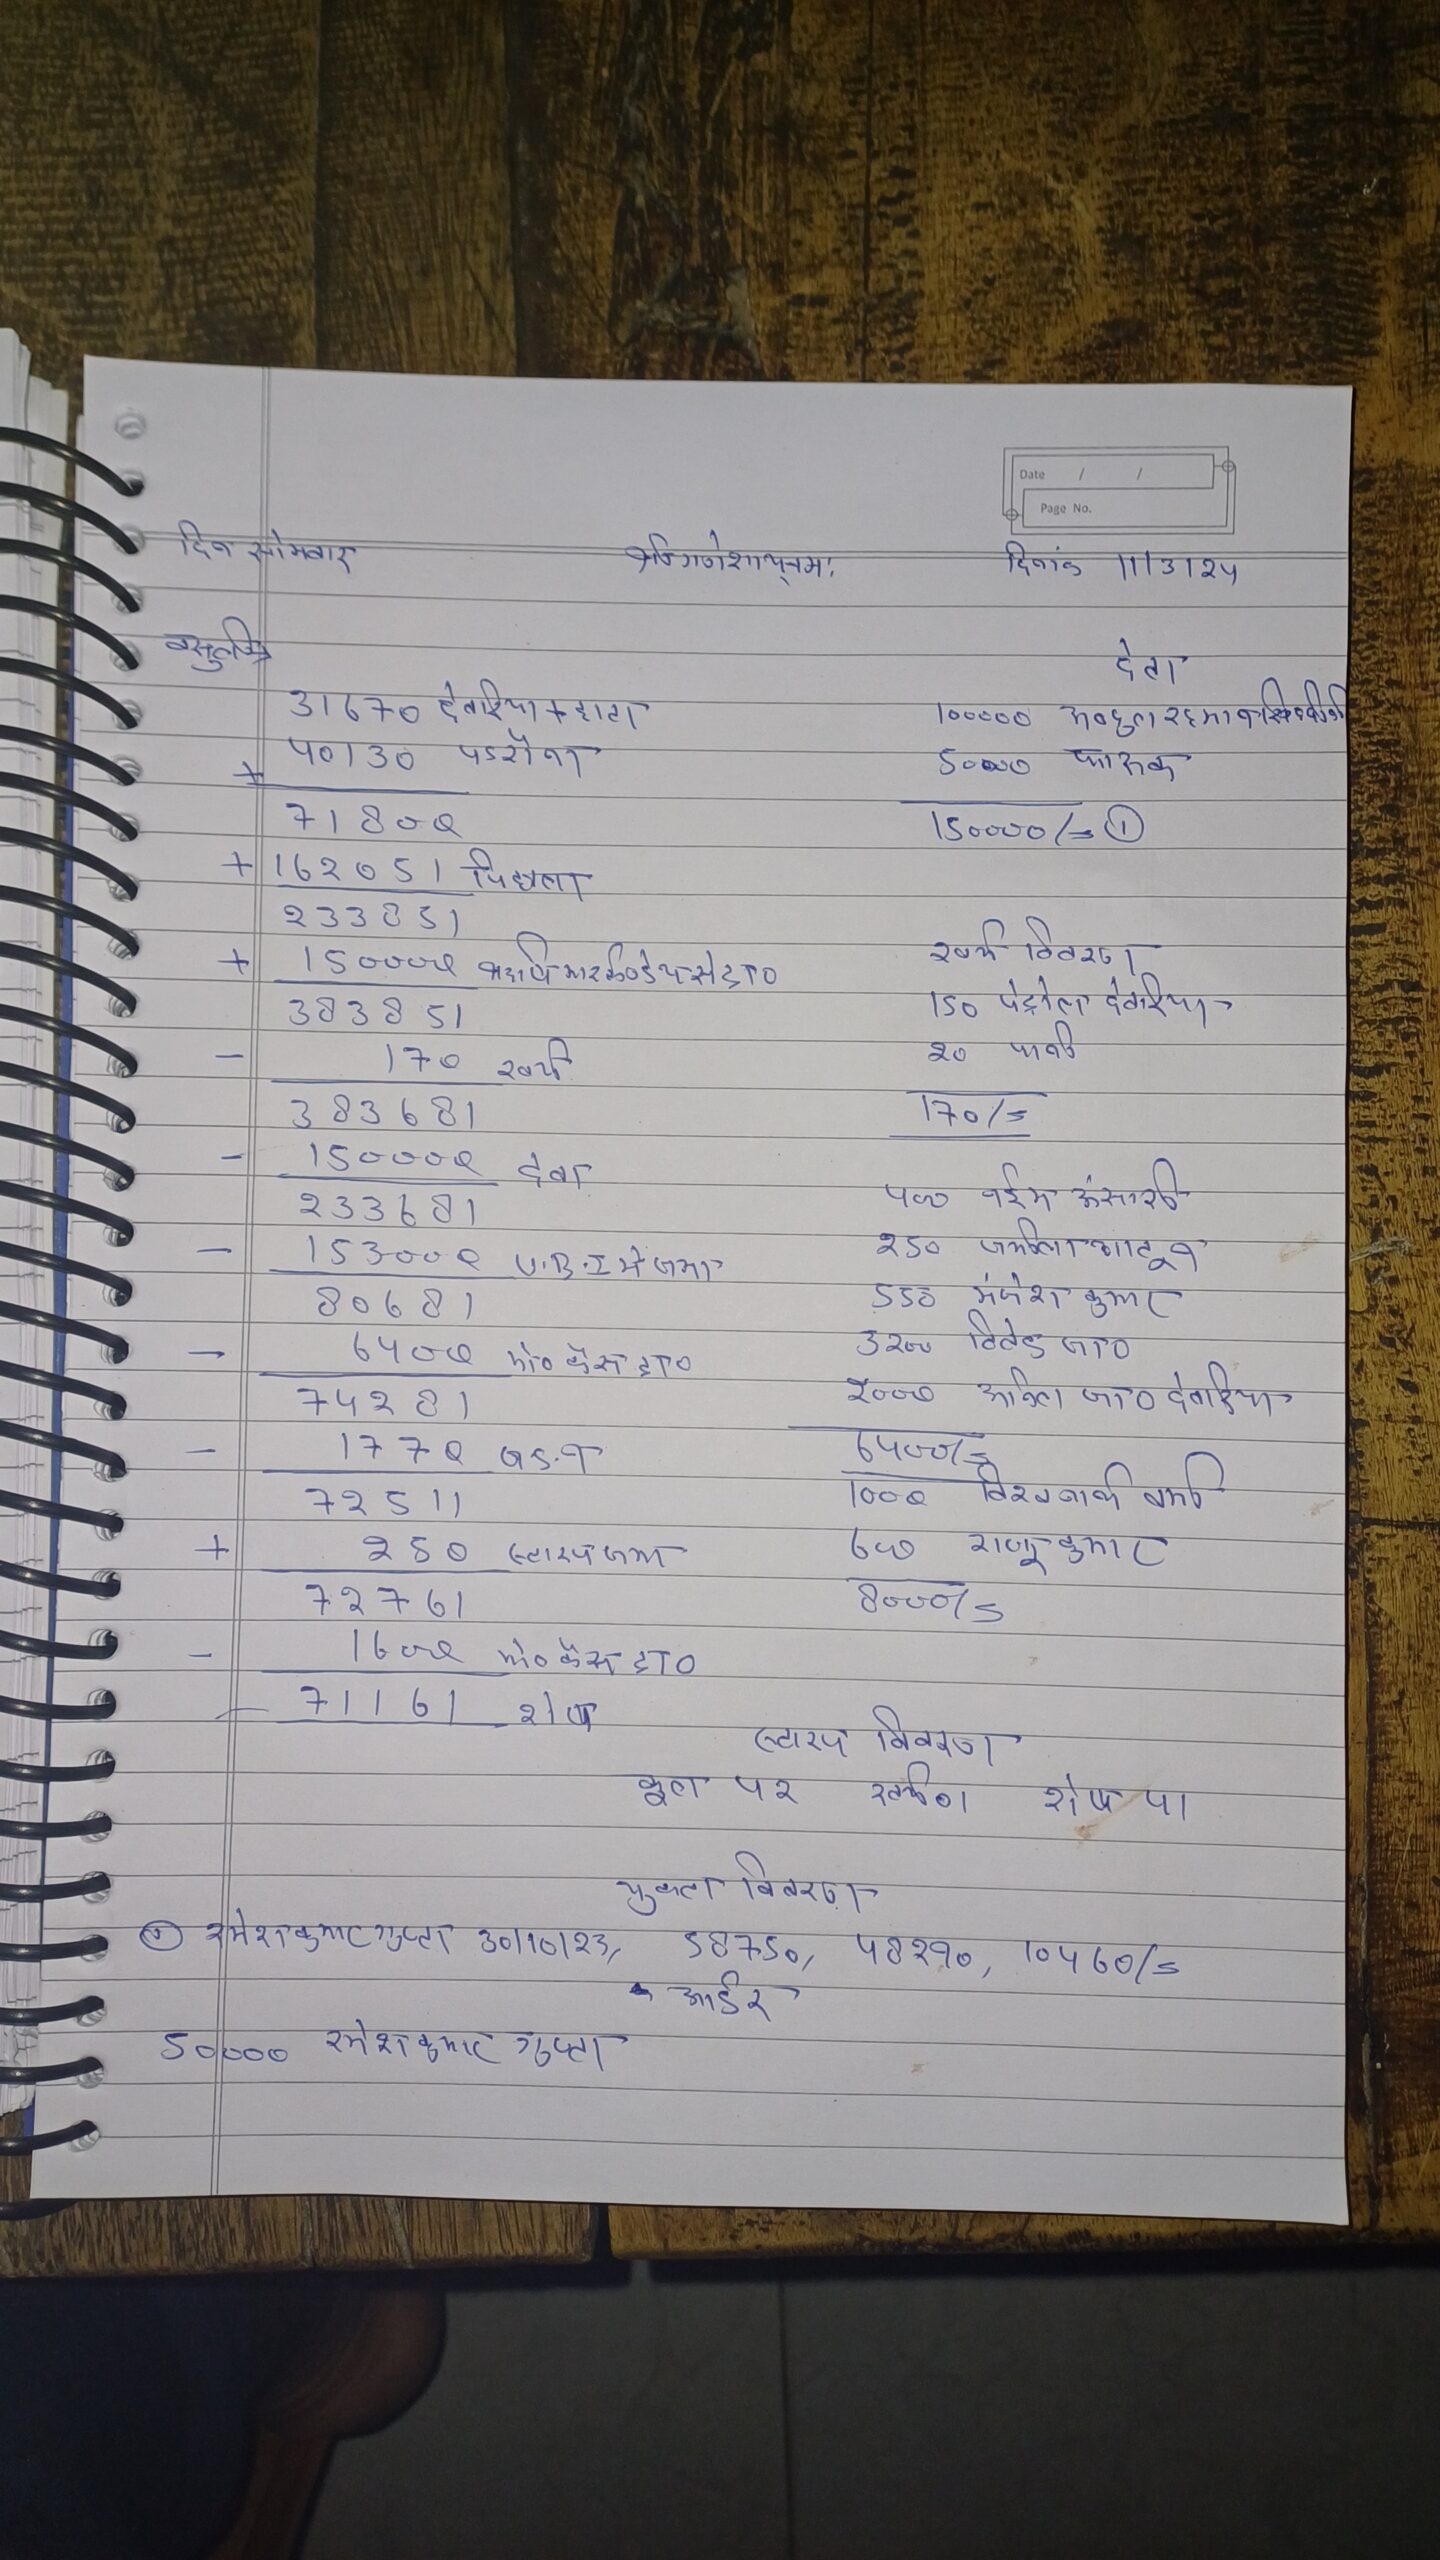 Date / /
Page No.
दिन सोमवार श्री गणेशाय नमः दिनांक 11/3/24
वसुली
देना
31670 देवरिया + हाटा
100000 अब्दुल रहमान सिद्दीकी
+ 40130 पडरौना
50000 फारुक
71800
150000/= ①
+ 162051 पिछला
233851
+ 150000 से ह्रा०
खर्च विवरण
383851
150 पेट्रोल देवरिया
- 170 खर्च
20 पानी
383681
170/=
- 150000 देना
233681
400 नईम अंसारी
- 153000 U.B.I में जमा
250 जमीला खातून
80681
550 मंगेश कुमार
- 6400 लो० कैस ह्रा०
3200
74281
2000 देवरिया
- 1770
6400/=
72511
1000
+ 250 स्टाम्प जमा
600 राजू कुमार
72761
8000/=
- 1600 लो० कैस ह्रा०
71161 शेष
स्टाम्प विवरण
कुल 42 शेष 41
चुकता विवरण
① रमेश कुमार गुप्ता 30/10/23, 58750, 48290, 10460/=
आर्डर
50000 रमेश कुमार गुप्ता